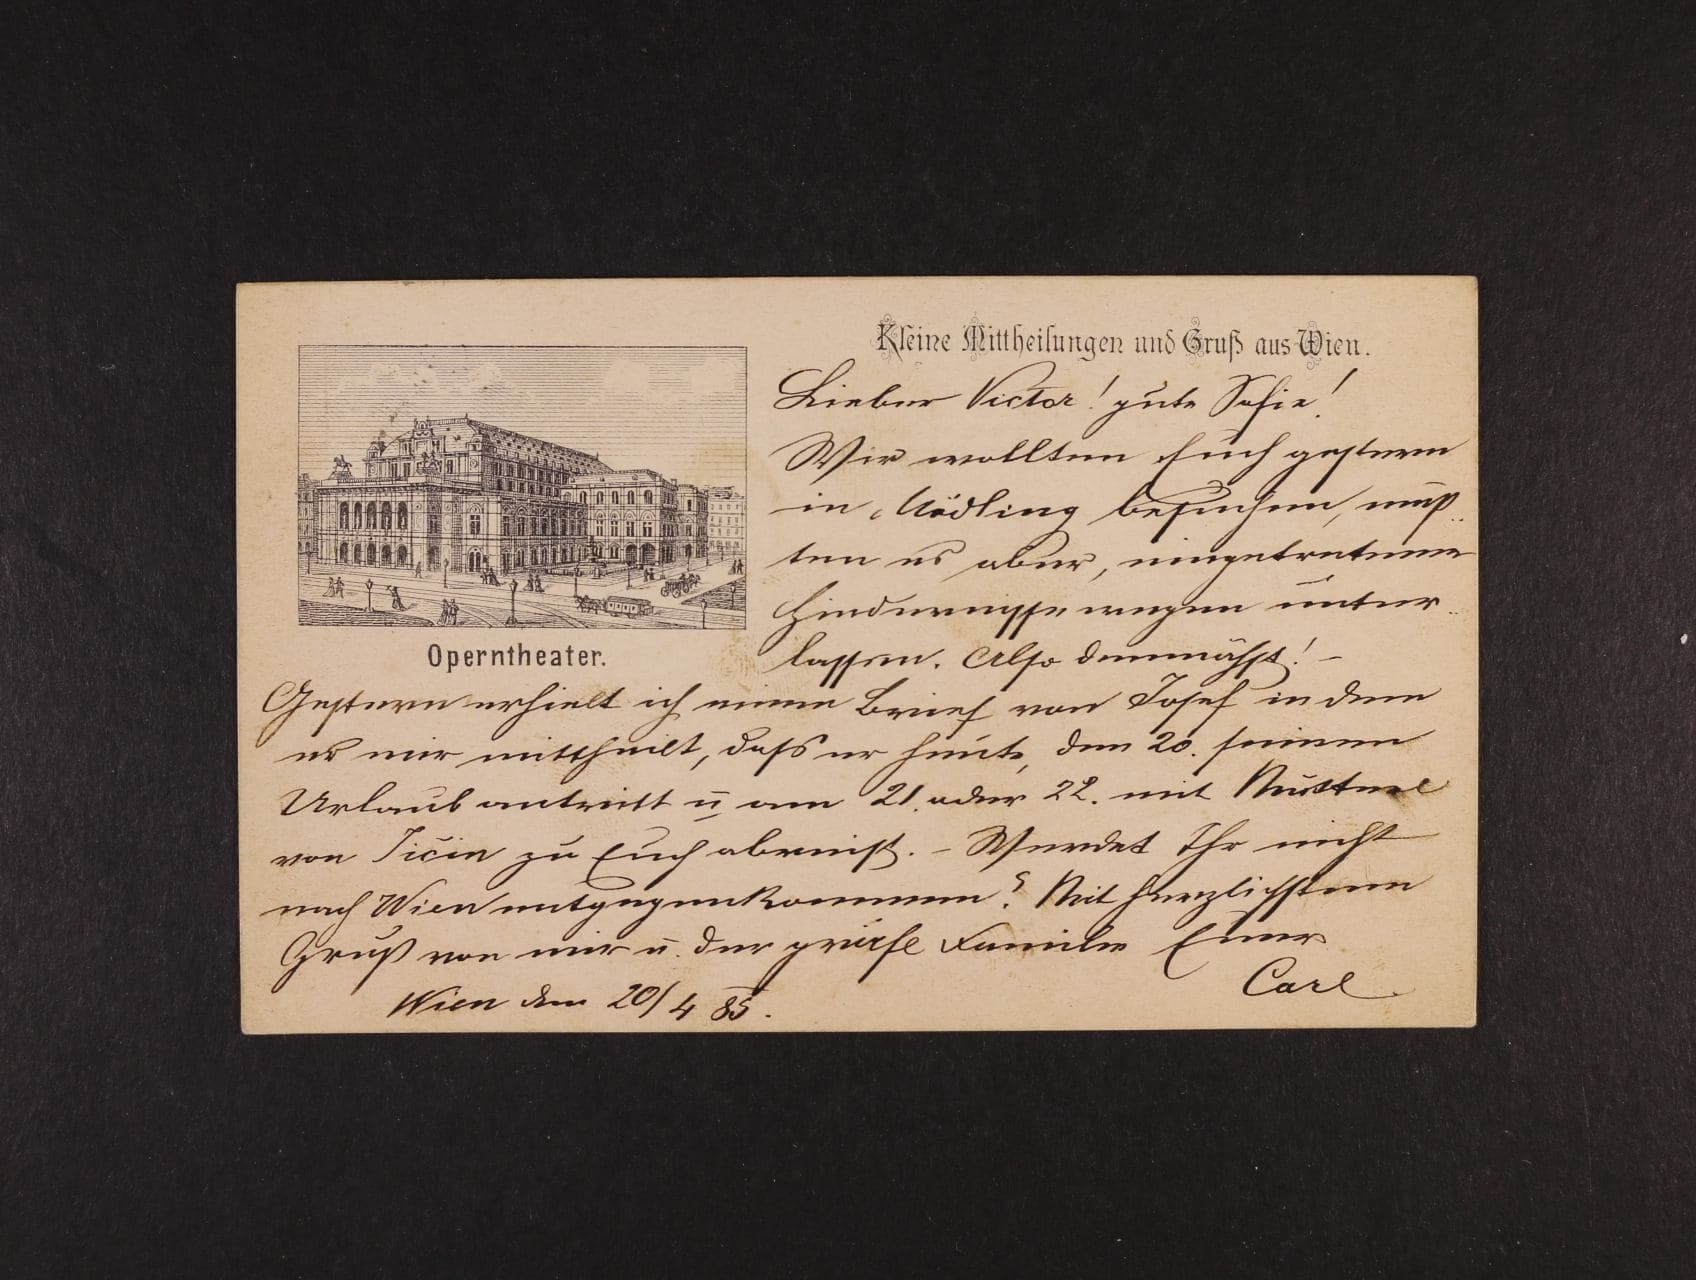 Kleine Mittheilungen und Gruß aus Wien.
Lieber Victor! gute Sofie!
Wir wollten Euch gestern
in Mödling besuchen, muß-
ten es aber, eingetretener
Hindernisse wegen unter-
lassen. Also demnächst! –
Operntheater.
Gestern erhielt ich einen Brief von Josef in dem
er mir mittheilt, dass er heute, den 20. seinen
Urlaub antritt u am 21. oder 22. mit
von Jičin zu Euch abreist. – Werdet Ihr nicht
nach Wien entgegenkommen? Mit herzlichstem
Gruß von mir u. der Familie Euer
Carl
Wien den 20/4 85.